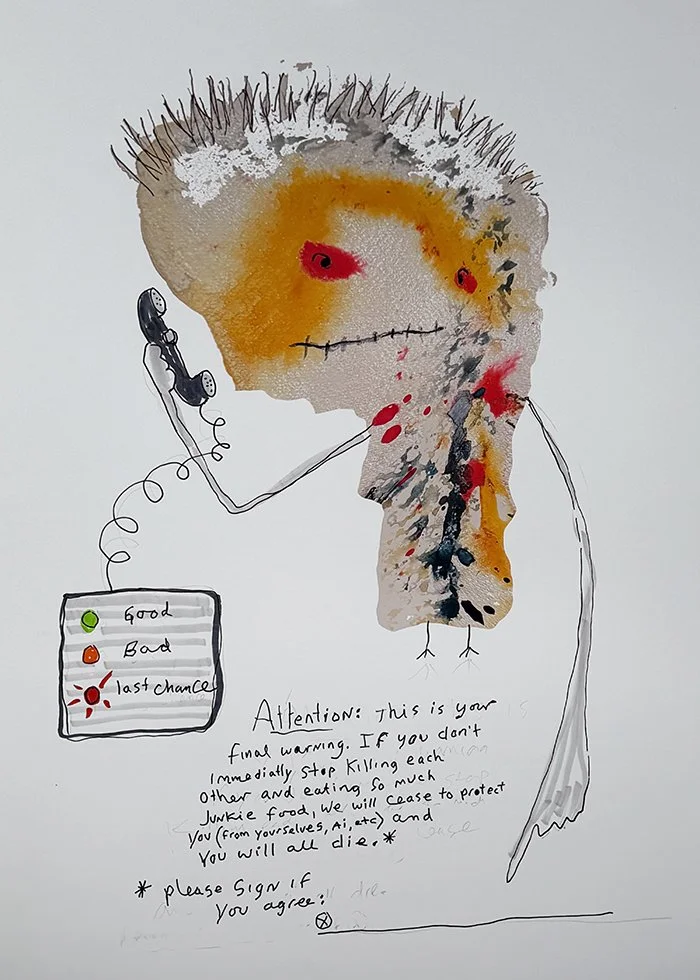 Good
Bad
last chance
Attention: This is your
final warning. If you don't
Immediatly stop killing each
other and eating so much
Junkie food, we will cease to protect
you (from yourselves, Ai, etc) and
you will all die.*
* please sign if
you agree: